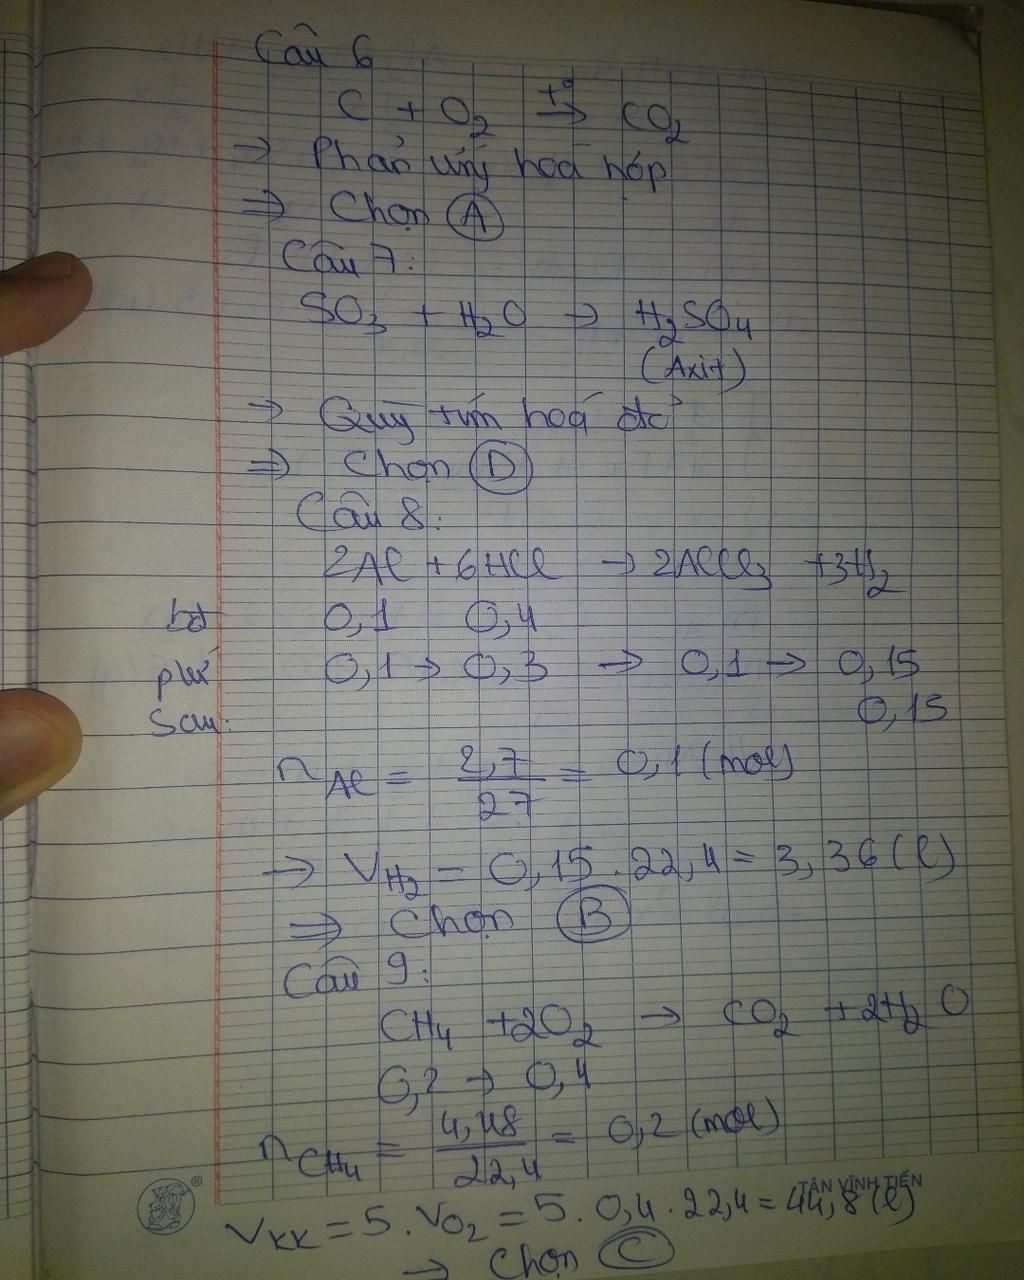 Câu 6
C + O₂ →(t°) CO₂
→ Phản ứng hoá hợp
⇒ Chọn A
Câu 7:
SO₃ + H₂O → H₂SO₄
(Axit)
→ Quỳ tím hoá đỏ
⇒ Chọn D
Câu 8:
2Al + 6HCl → 2AlCl₃ + 3H₂
bđ 0,1 0,4
pứ 0,1 → 0,3 → 0,1 → 0,15
Sau: 0,15
n Al = 2,7/27 = 0,1 (mol)
→ V H₂ = 0,15 . 22,4 = 3,36 (l)
⇒ Chọn B
Câu 9:
CH₄ + 2O₂ → CO₂ + 2H₂O
0,2 → 0,4
n CH₄ = 4,48/22,4 = 0,2 (mol)
TÂN VĨNH TIẾN
V KK = 5 . V O₂ = 5 . 0,4 . 22,4 = 44,8 (l)
→ Chọn C